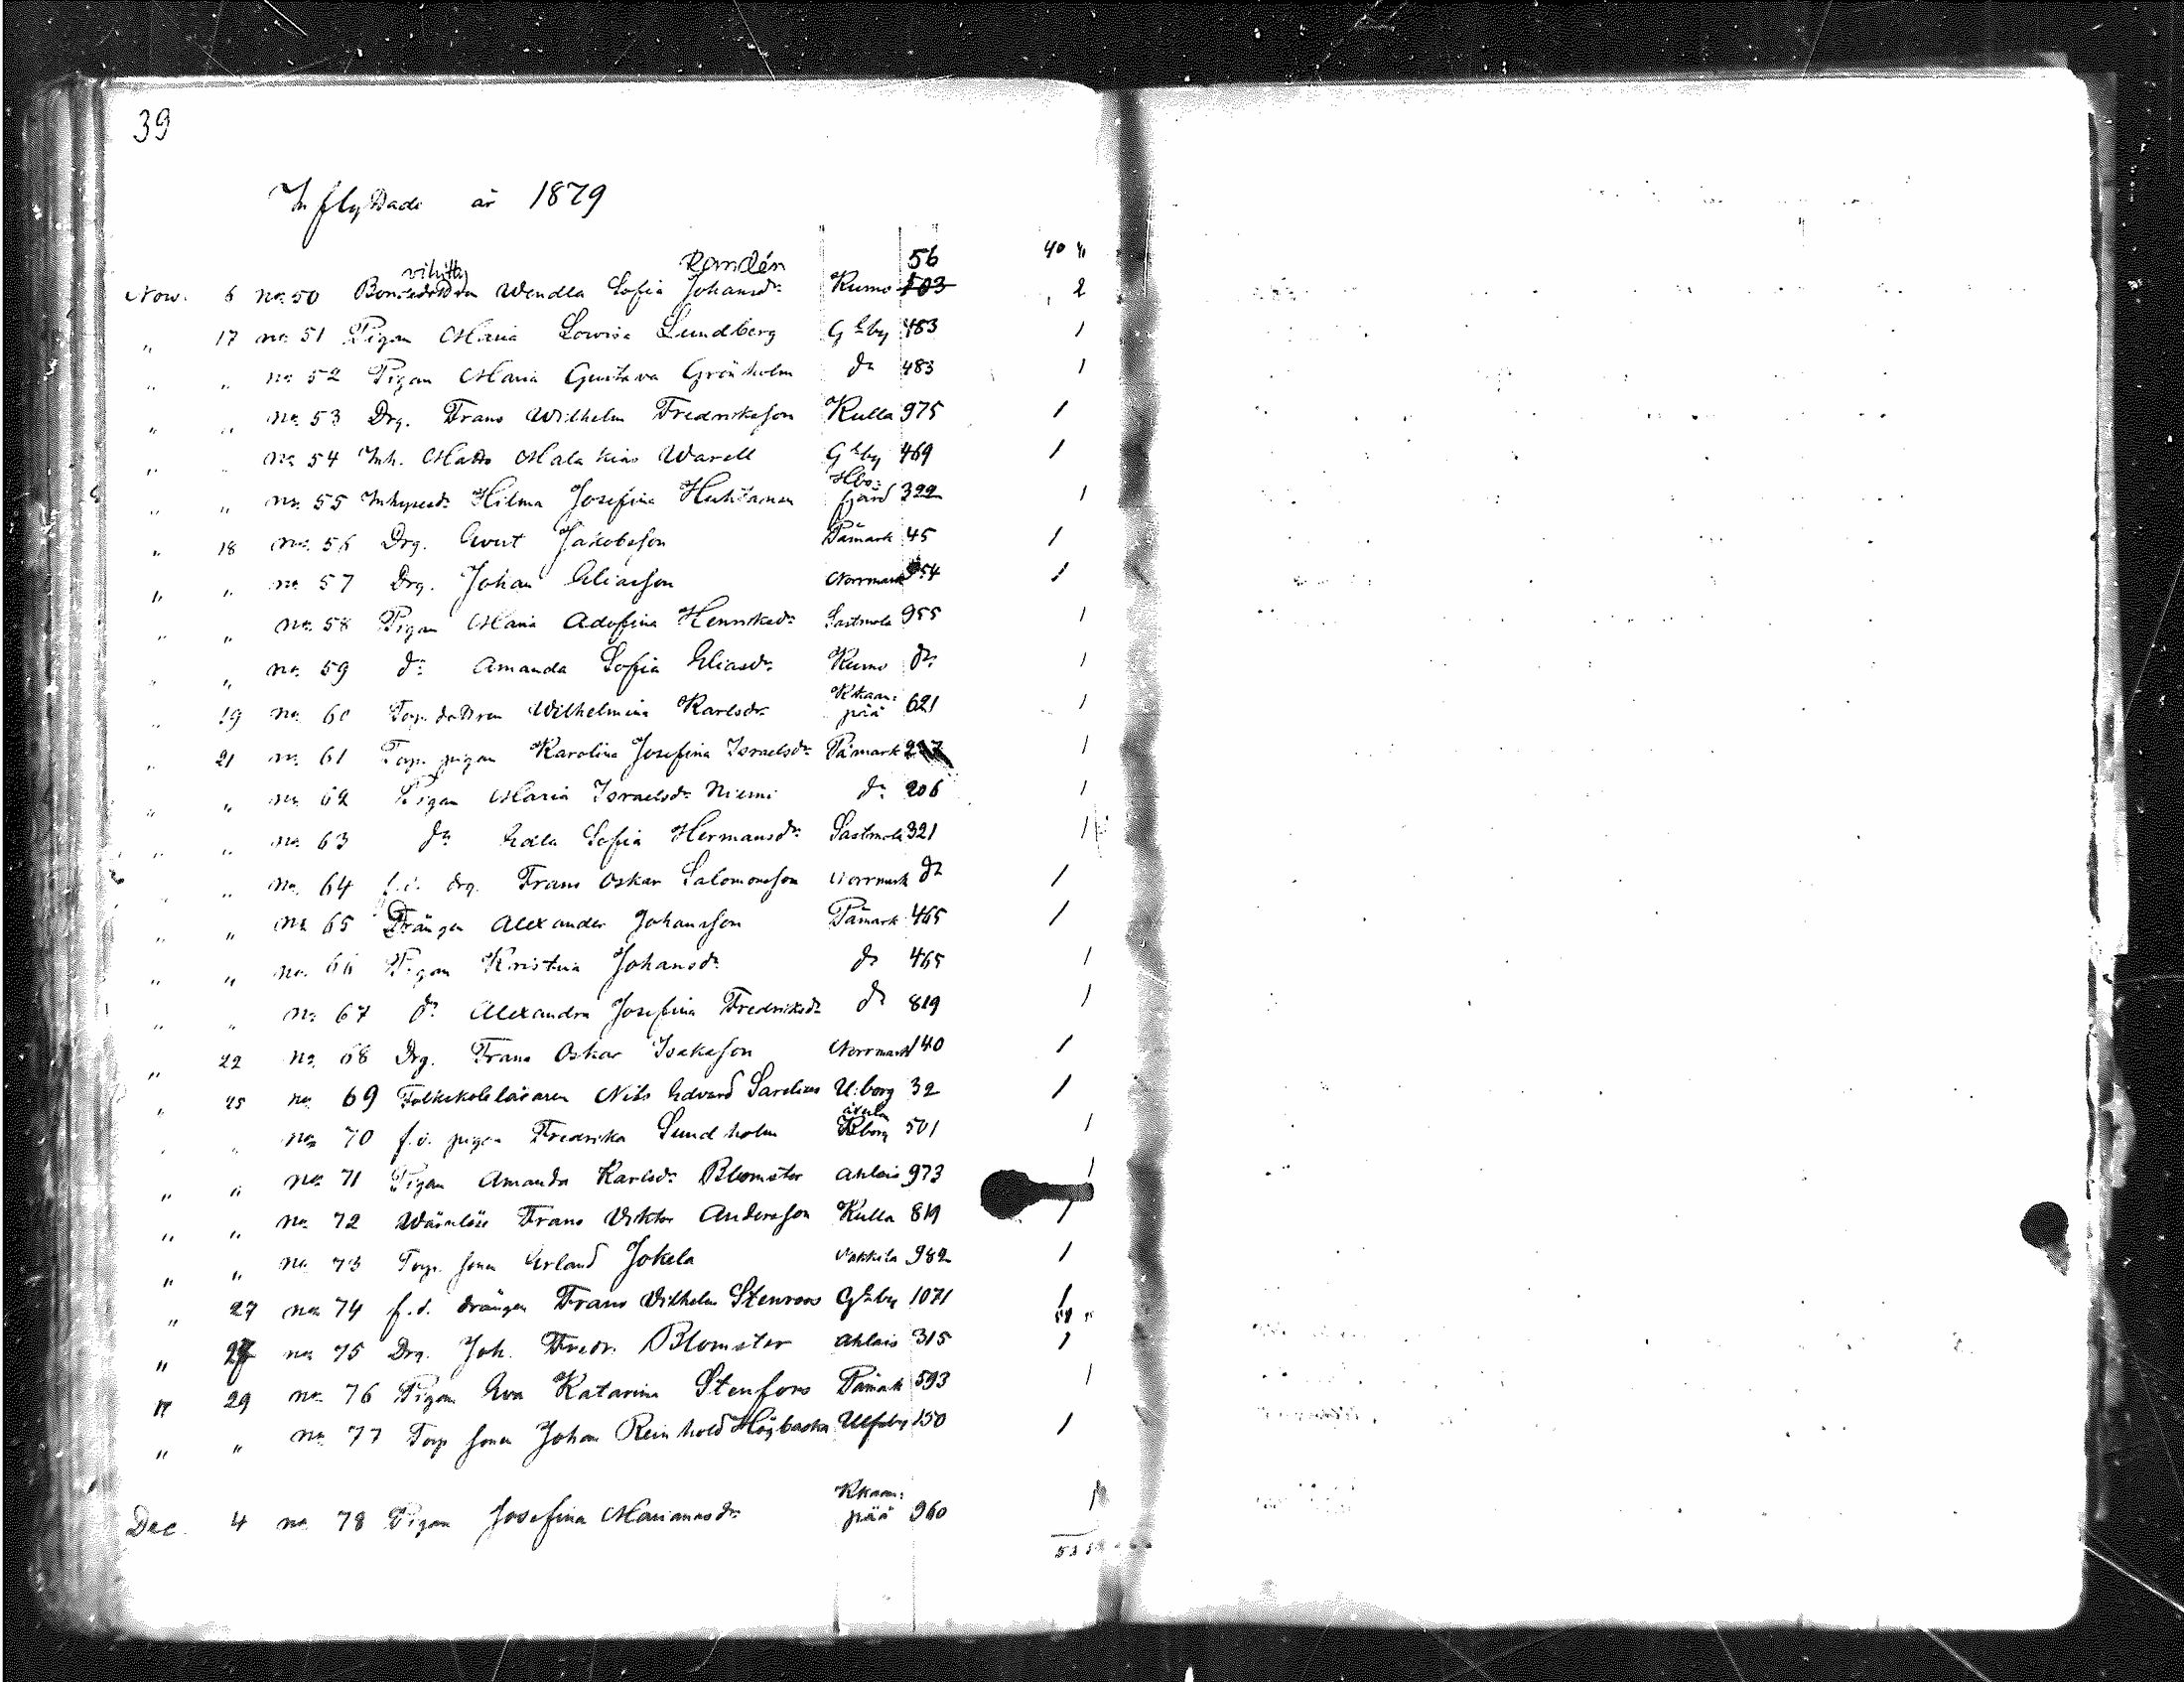 39
Inflyttade år 1879
Randén 56 40 "
vihitty
Nov. 6 no 50 Bondedottren Wendla Sofia Johansdr Kumo 503 2
" 17 no 51 Pigan Maria Lowisa Lundberg Gkby 483 1
" " no 52 Pigan Maria Gustava Grönholm do 483 1
" " no 53 Drg. Frans Wilhelm Fredriksson Kulla 975 1
" " no 54 Inh. Matts Malakias Warell Gkby 469 1
Hbo:
" " no 55 Inhysedr Hilma Josefina Huhtanen fjärd 322 1
" 18 no 56 Drg. Evert Jakobsson Påmark 45 1
" " no 57 Drg. Johan Eliasson Norrmark 954 1
" " no 58 Pigan Maria Adofina Henriksdr Sastmola 955 1
" " no 59 do Amanda Sofia Eliasdr Kumo do 1
Kkaan:
" 19 no 60 Torp. dottren Wilhelmina Karlsdr pää 621 1
" 21 no 61 Torp. pigan Karolina Josefina Israelsdr Påmark 1
" " no 62 Pigan Maria Israelsdr Niemi do 206 1
" " no 63 do Edla Sofia Hermansdr Sastmola 321 1
" " no 64 f.d. drg. Frans Oskar Salomonsson Norrmark do 1
" " no 65 Drängen Alexander Johansson Påmark 465 1
" " no 66 Pigan Kristina Johansdr do 465 1
" " no 67 do Alexandra Josefina Fredriksdr do 819 1
" 22 no 68 Drg. Frans Oskar Isaksson Norrmark 140 1
" 25 no 69 Folkskoleläraren Nils Edvard Sarelius U:borg 32 1
" " no 70 f.d. pigan Fredrika Sundholm 501 1
" " no 71 Pigan Amanda Karlsdr Blomster Ahlais 973 1
" " no 72 Wärnlöse Frans Viktor Andersson Kulla 819 1
" " no 73 Torp. sonen Erland Jokela Nakkila 982 1
" 27 no 74 f.d. drängen Frans Vilhelm Stenroos Gkby 1071 1
" 27 no 75 Drg. Joh. Fredr. Blomster Ahlais 315 1
" 29 no 76 Pigan Eva Katarina Stenfors Påmark 593 1
" " no 77 Torp sonen Johan Reinhold Högbacka Ulfsby 150 1
Kkaan:
Dec. 4 no 78 Pigan Josefina Mariansdr pää 960 1